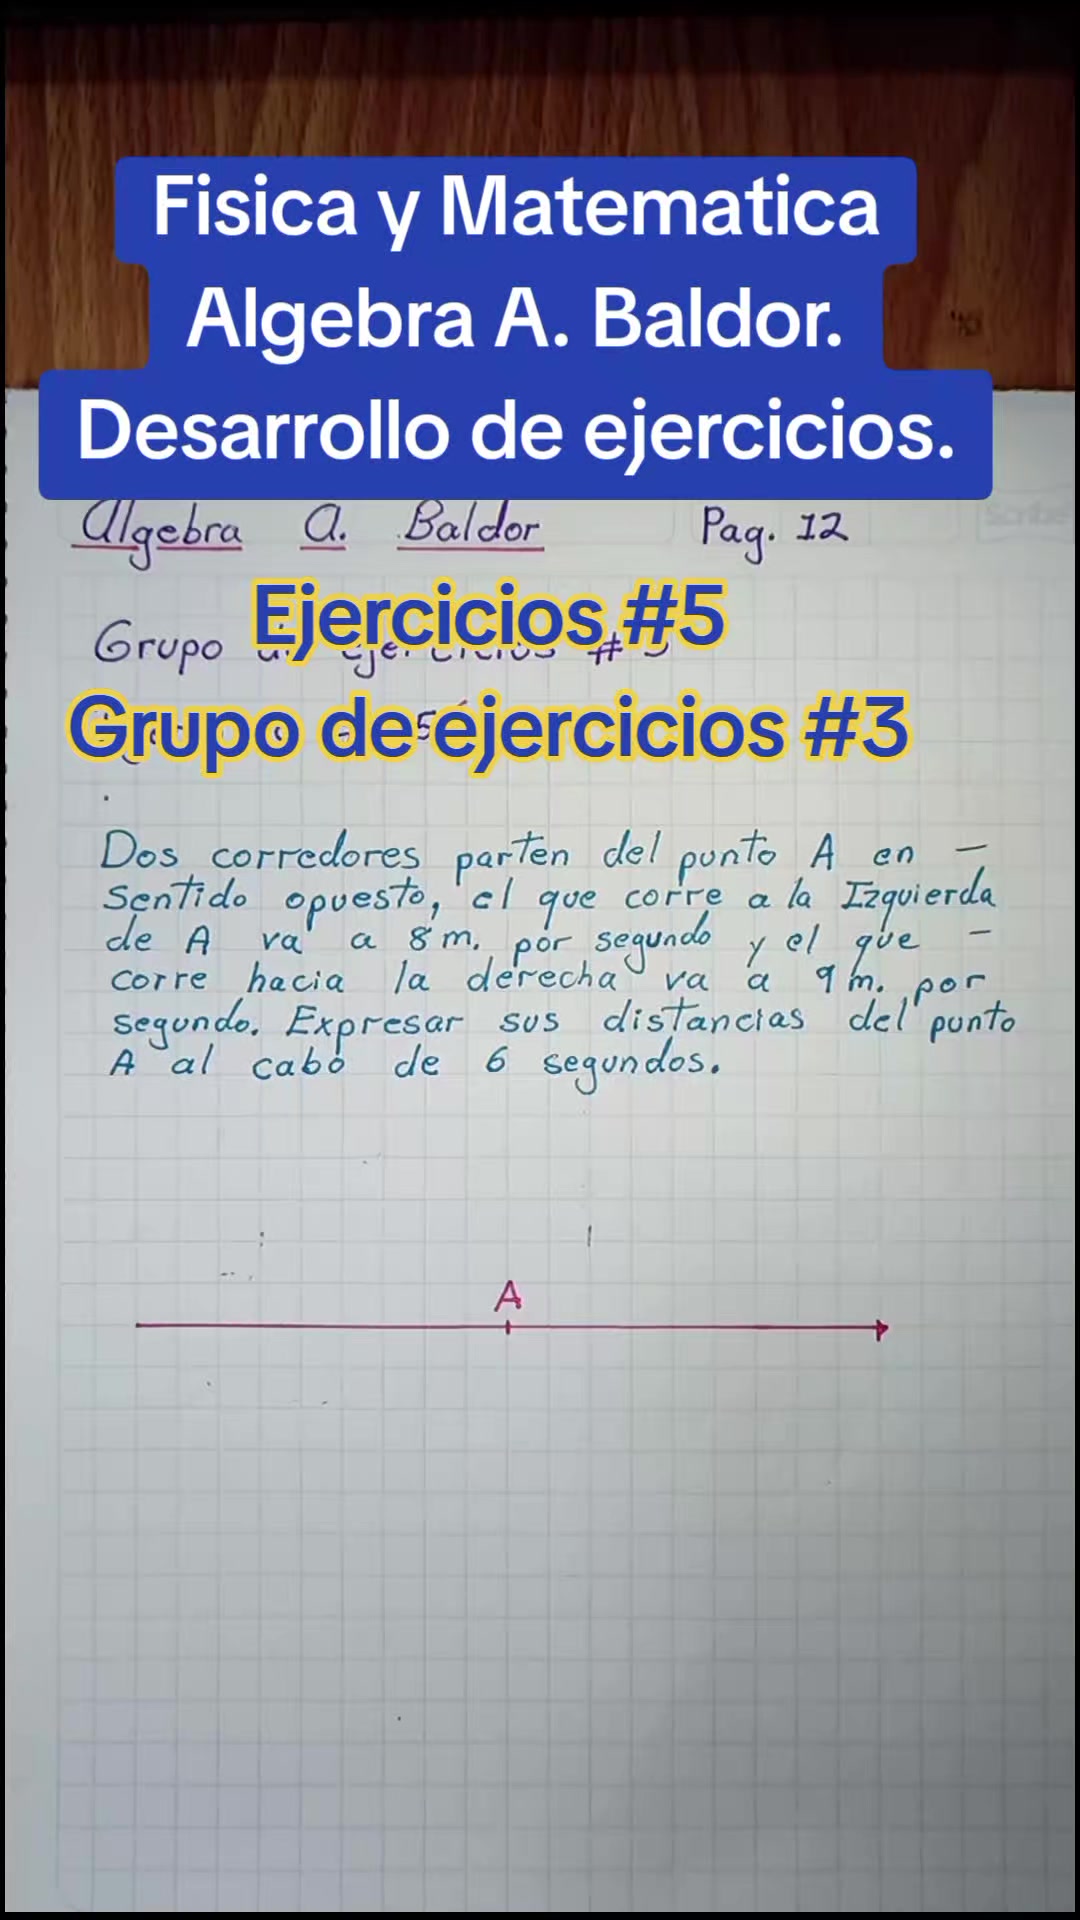 Fisica y Matematica
Algebra A. Baldor.
Desarrollo de ejercicios.
Algebra A. Baldor Pag. 12
Ejercicios #5
Grupo
Grupo de ejercicios #3
Dos corredores parten del punto A en -
Sentido opuesto, el que corre a la Izquierda
de A va a 8 m. por segundo y el que -
corre hacia la derecha va a 9 m. por
segundo. Expresar sus distancias del punto
A al cabo de 6 segundos.
A